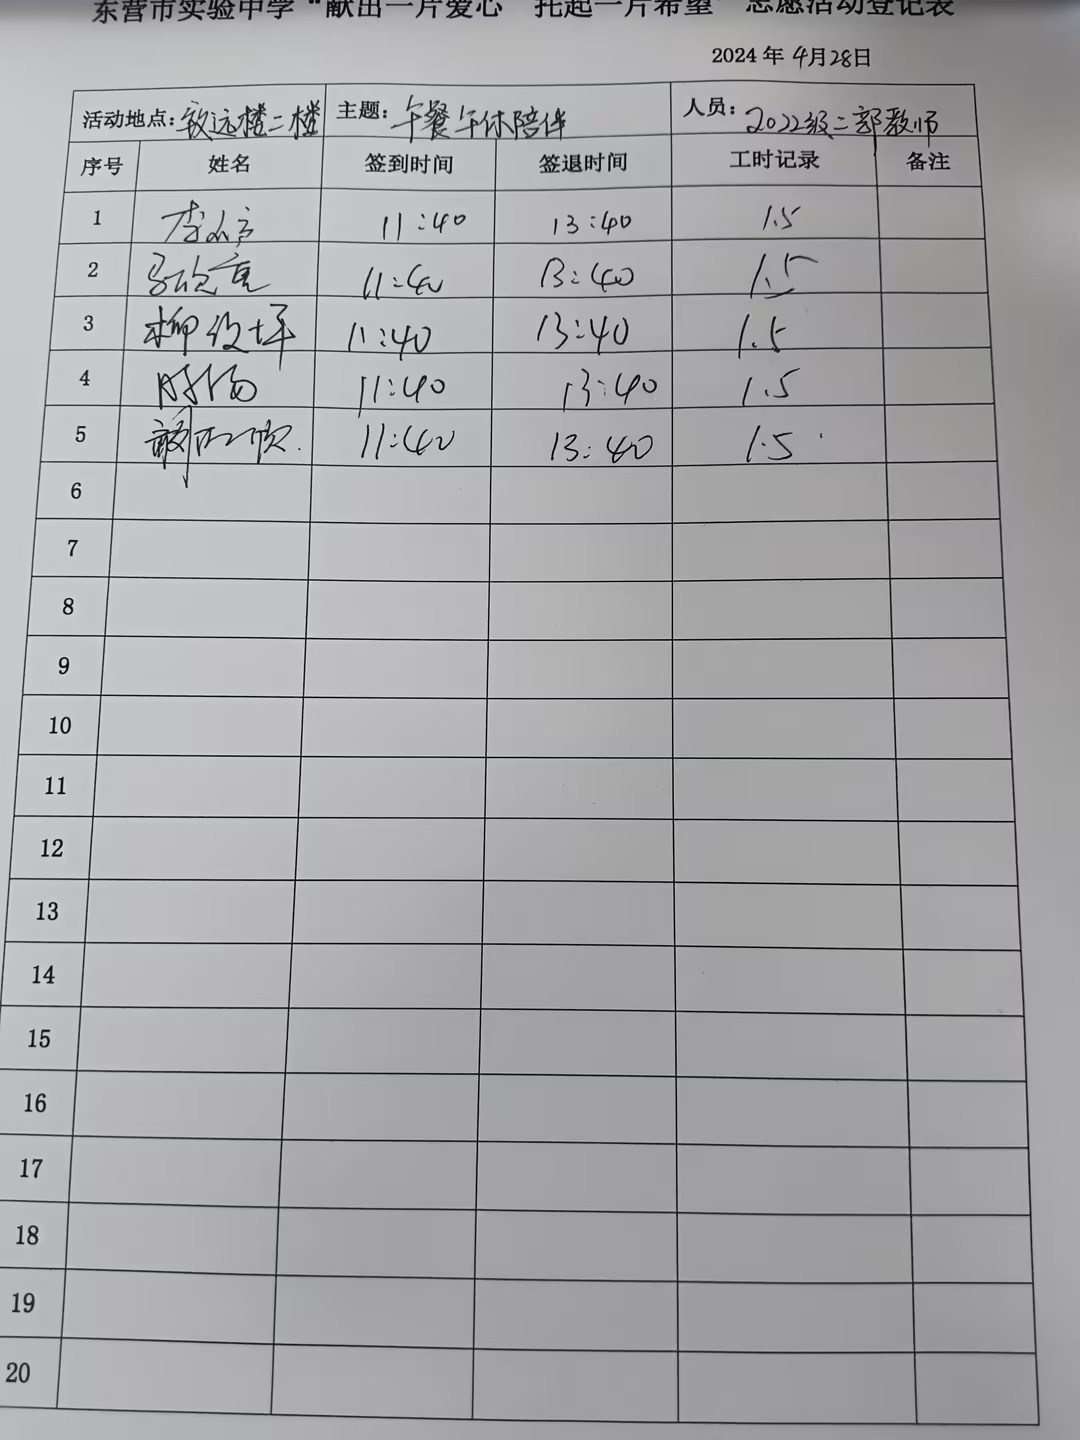 东营市实验中学“献出一片爱心 托起一片希望”志愿活动登记表
2024年4月28日
活动地点:致远楼二楼 主题:午餐午休陪伴 人员:2022级二部教师
序号 姓名 签到时间 签退时间 工时记录 备注
1 李 11:40 13:40 1.5
2 11:40 13:40 1.5
3 柳 坪 11:40 13:40 1.5
4 时杨 11:40 13:40 1.5
5 11:40 13:40 1.5
6
7
8
9
10
11
12
13
14
15
16
17
18
19
20